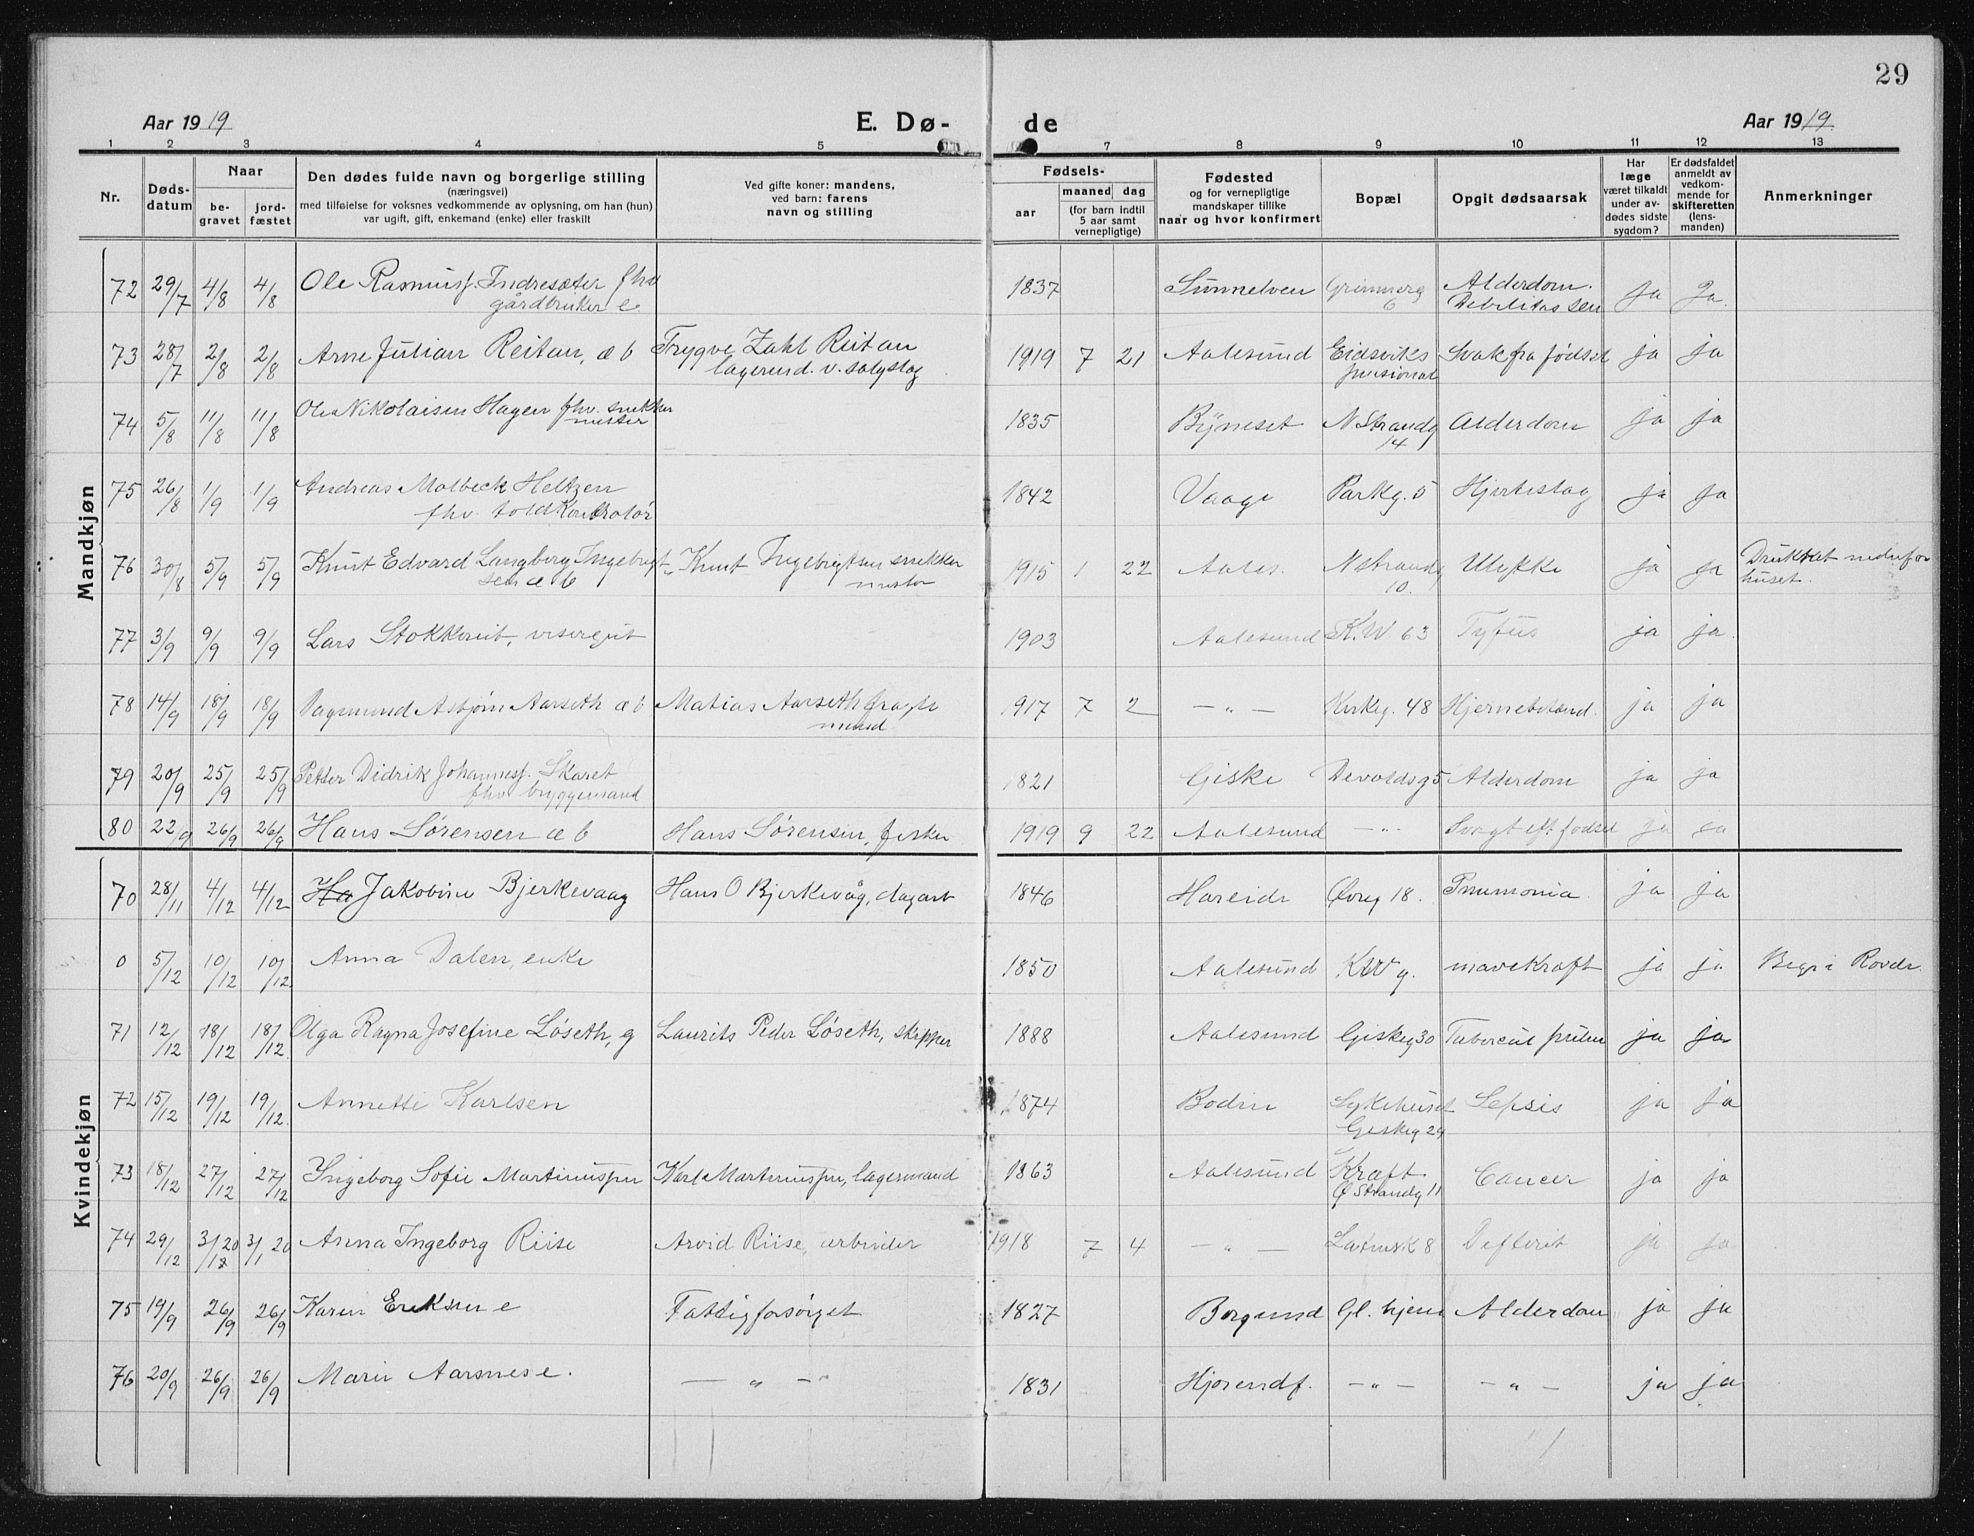 29
Aar 1919 E. Dø- de Aar 1919
1 2 3 4 5 7 8 9 10 11 12 13
Nr. Døds-datum Naar be-gravet jord-fæstet Den dødes fulde navn og borgerlige stilling (næringsvei) med tilføielse for voksnes vedkommende av oplysning, om han (hun) var ugift, gift, enkemand (enke) eller fraskilt Ved gifte koner: mandens, ved barn: farens navn og stilling Fødsels- aar maaned dag (for barn indtil 5 aar samt vernepligtige) Fødested og for vernepligtige mandskaper tillike naar og hvor konfirmert Bopæl Opgit dødsaarsak Har læge været tilkaldt under av-dødes sidste sygdom? Er dødsfaldet anmeldt av vedkom-mende for skifteretten (lens-manden) Anmerkninger
Mandkjøn
72 29/7 4/8 4/8 Ole Rasmusf. Indresæter fhv 1837 Sunnelven Grimmerg Alderdom. Ja Ja.
gårdbruker e 6 Debilitas sen
73 28/7 2/8 2/8 Arne Julian Reitan, æ b Trygve Zahl Reitan 1919 7 21 Aalesund Eidsviks Svak fra fødsel ja ja
lagerund. v. salgslag pensionat
74 5/8 11/8 11/8 Ole Nikolaisen Hagen fhv. snekker 1835 Bÿneset N Strandg Alderdom ja ja
mester 14
75 26/8 1/9 1/9 Andreas Molbeck Heltzen 1842 Vaage Parkg. 5 Hjerteslag ja ja
fhv. toldkontrolør
76 30/8 5/9 5/9 Knut Edvard Langberg Ingebrigt- Knut Ingebrigtsen snekker 1915 1 22 Aales. N Strandg Ulykke ja ja Druknet nedenfor
sen æ b mester 10. huset.
77 3/9 9/9 9/9 Lars Stokkereit, visergut 1903 Aalesund K.W 63 Tyfus ja ja.
78 14/9 18/9 18/9 Dagmund Asbjørn Aarseth æ b Matias Aarseth fragte 1917 7 2 — " — Kirkeg. 48 Hjernebetænd. ja ja
mand
79 20/9 25/9 25/9 Petter Didrik Johannesf. Skaret 1821 Giske Devoldsg 5 Alderdom ja ja
fhv. bryggemand
80 22/9 26/9 26/9 Hans Sørensen æ b Hans Sørensen, fisker 1919 9 22 Aalesund — " — Svagt eft. fødsel ja ja
Kvindekjøn
70 28/11 4/12 4/12 Ha Jakobine Bjerkevaag Hans O Bjerkevåg, dagarb 1846 Hareide Øvreg 18. Pnumonia. ja ja
0 5/12 10/12 10/12 Anna Dalen, enke 1850 KW g. mavekræft ja ja Begr i Rovde.
Aalesund
71 12/12 18/12 18/12 Olga Ragna Josefine Løseth, g Laurits Peder Løseth, skipper 1888 Aalesund Giskeg 30 Tubercul pulm ja ja
72 15/12 19/12 19/12. Annette Karlsen 1874 Bodin Sykehuset Sepsis ja ja
Giskeg 29
73 18/12 27/12 27/12 Ingeborg Sofie Martinussen Karl Martinussen, lagermand 1863 Aalesund Kraft Cancer ja ja
Ø Strandg 11
74 29/12 3/12 20 3/1 20 Anna Ingeborg Riise Arvid Riise, arbeider 1918 7 4 — " — 8 Difterit ja ja
75 19/9 26/9 26/9 Karen Eriksen e Fattigforsørget 1827 Borgund Gl. hjem Alderdom ja ja
76 20/9 26/9 26/9 Marie Aarsnes e. — " — 1831 Hjørendf. — " — — " — ja ja